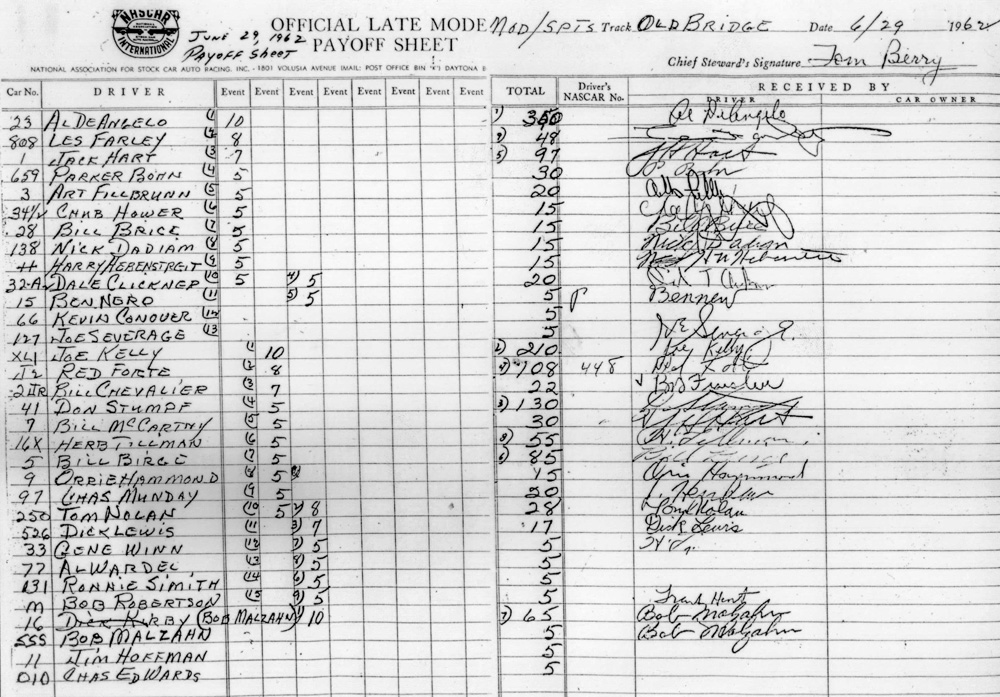 NASCAR
INTERNATIONAL
JUNE 29, 1962
PAYOFF SHEET
OFFICIAL LATE MODE MOD/SPTS Track OLD BRIDGE Date 6/29 1962
PAYOFF SHEET
Chief Steward's Signature Tom Berry
NATIONAL ASSOCIATION FOR STOCK CAR AUTO RACING, INC. - 1801 VOLUSIA AVENUE (MAIL: POST OFFICE BIN "K") DAYTONA B
Car No. DRIVER Event Event Event Event Event Event Event Event TOTAL Driver's NASCAR No. RECEIVED BY
DRIVER CAR OWNER
23 AL DEANGELO (1) 10 1) 350 Al DeAngelo
808 LES FARLEY (2) 8 2) 48
1 JACK HART (3) 7 5) 97 J Hart
659 PARKER BOHN (4) 5 30 P Bohn
3 ART FILLBRUNN (5) 5 20
34½ CHUB HOWER (6) 5 15
28 BILL BRICE (7) 5 15 Bill Brice
138 NICK DADIAM (8) 5 15
H HARRY HEBENSTREIT (9) 5 15
32-A DALE CLICKNER (10) 5 4) 5 20
15 BEN NERO (11) 5) 5 5 P Bennero
66 KEVIN CONOVER (12) 5
127 JOE SEVERAGE (13) 5
XL1 JOE KELLY (1) 10 2) 210 Joe Kelly
II2 RED FORTE (2) 8 4) 108 448
2IIR BILL CHEVALIER (3) 7 22 √
41 DON STUMPF (4) 5 3) 130
7 BILL MCCARTHY (5) 5 30 J Hart
16X HERB TILLMAN (6) 5 8) 55 H. Tillman
5 BILL BIRGE (7) 5 6) 85
9 ORRIE HAMMOND (8) 5 15 Hammond
97 CHAS MUNDAY (9) 5 20
250 TOM NOLAN (10) 5 2) 8 28 Tom Nolan
526 DICK LEWIS (11) 3) 7 17 Dick Lewis
33 GENE WINN (12) 7) 5 5
77 AL WARDEL (13) 8) 5 5
131 RONNIE SIMITH (14) 6) 5 5
M BOB ROBERTSON (15) 9) 5 5 Frank Hunt
16 DICK KIRBY (BOB MALZAHN) 1) 10 7) 65 Bob Malzahn
SSS BOB MALZAHN 5 Bob Malzahn
11 JIM HOFFMAN 5
010 CHAS EDWARDS 5